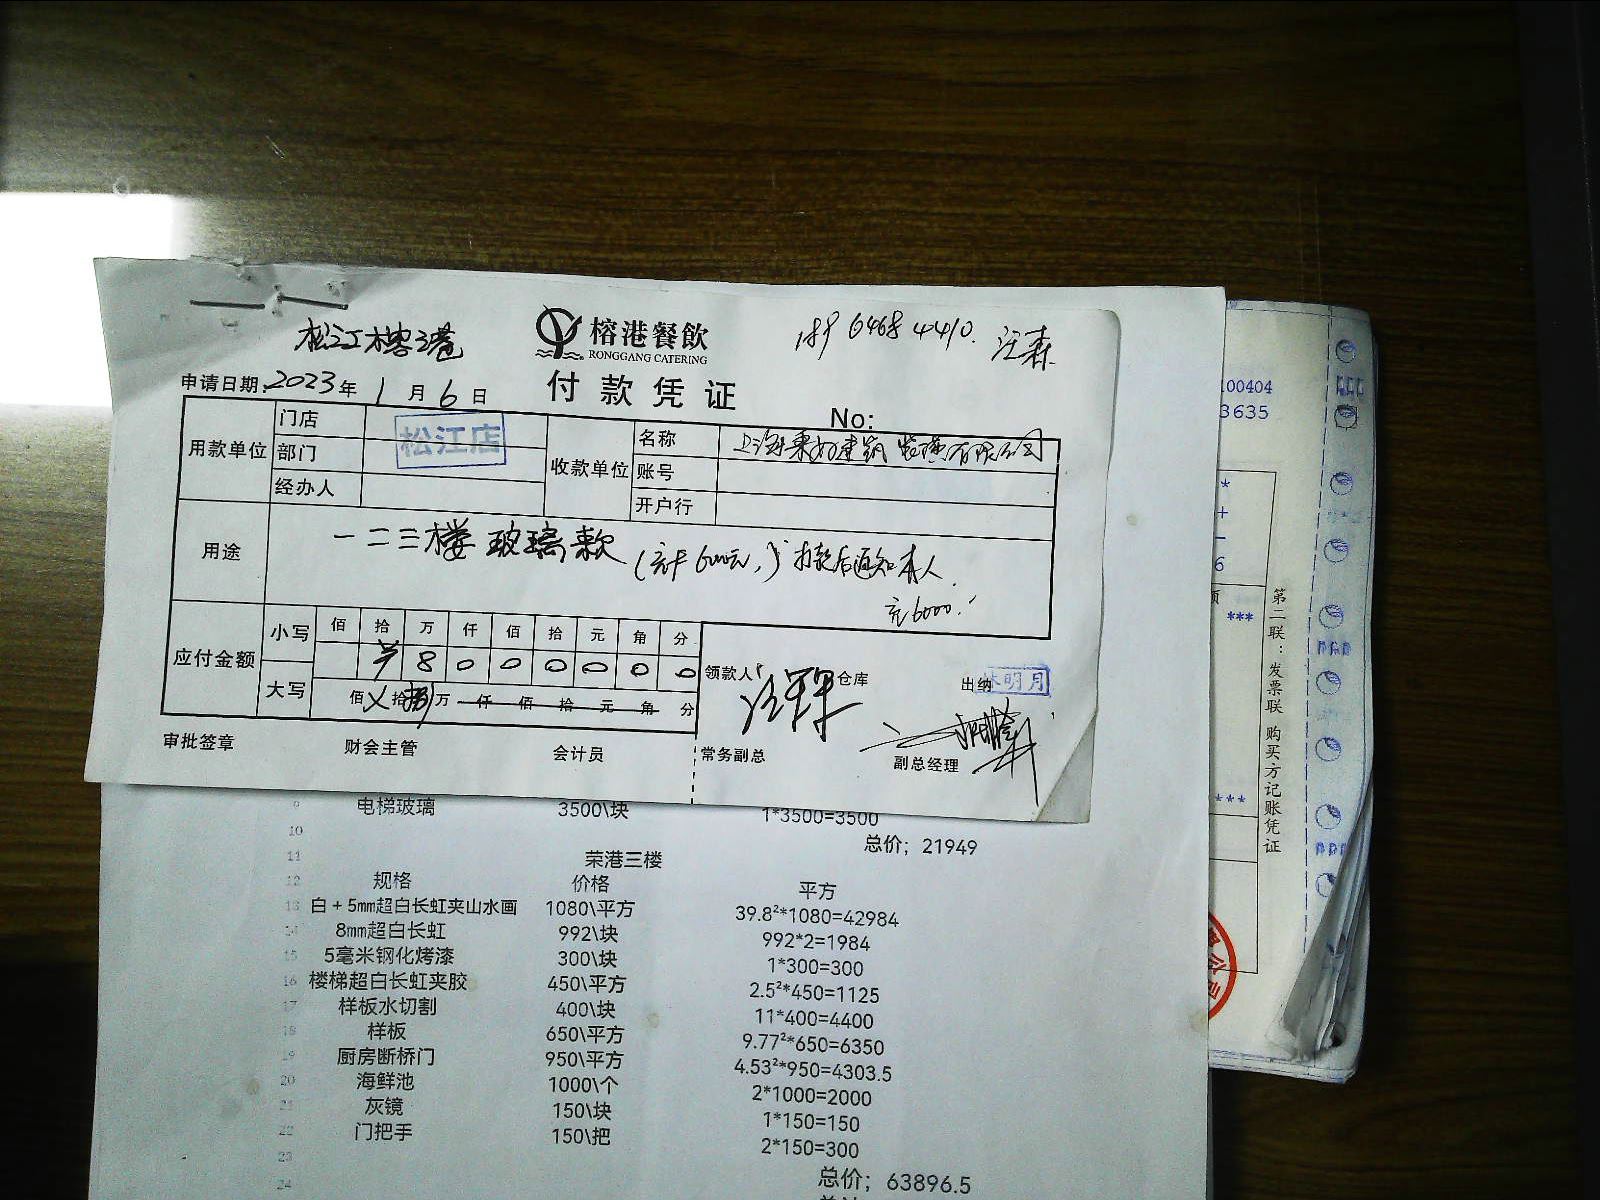 松江榕港
榕港餐飲
RONGGANG CATERING
189 6468 4410. 汪森
付款凭证
申请日期:2023年1月6日
No:
用款单位
门店
部门
经办人
松江店
收款单位
名称
账号
开户行
用途
一二三楼玻璃款
打款后通知本人
6000.
应付金额
小写
佰 拾 万 仟 佰 拾 元 角 分
8 0 0 0 0 0 0
大写
佰 拾 捌 万 仟 佰 拾 元 角 分
领款人
仓库
出纳
林明月
审批签章
财会主管
会计员
常务副总
副总经理
9 电梯玻璃 3500\块 1*3500=3500
10 总价；21949
11 荣港三楼
12 规格 价格 平方
13 白+5mm超白长虹夹山水画 1080\平方 39.8²*1080=42984
14 8mm超白长虹 992\块 992*2=1984
15 5毫米钢化烤漆 300\块 1*300=300
16 楼梯超白长虹夹胶 450\平方 2.5²*450=1125
17 样板水切割 400\块 11*400=4400
18 样板 650\平方 9.77²*650=6350
19 厨房断桥门 950\平方 4.53²*950=4303.5
20 海鲜池 1000\个 2*1000=2000
21 灰镜 150\块 1*150=150
22 门把手 150\把 2*150=300
23
24 总价；63896.5
100404
3635
*
+
-
6
***
***
第二联：发票联 购买方记账凭证